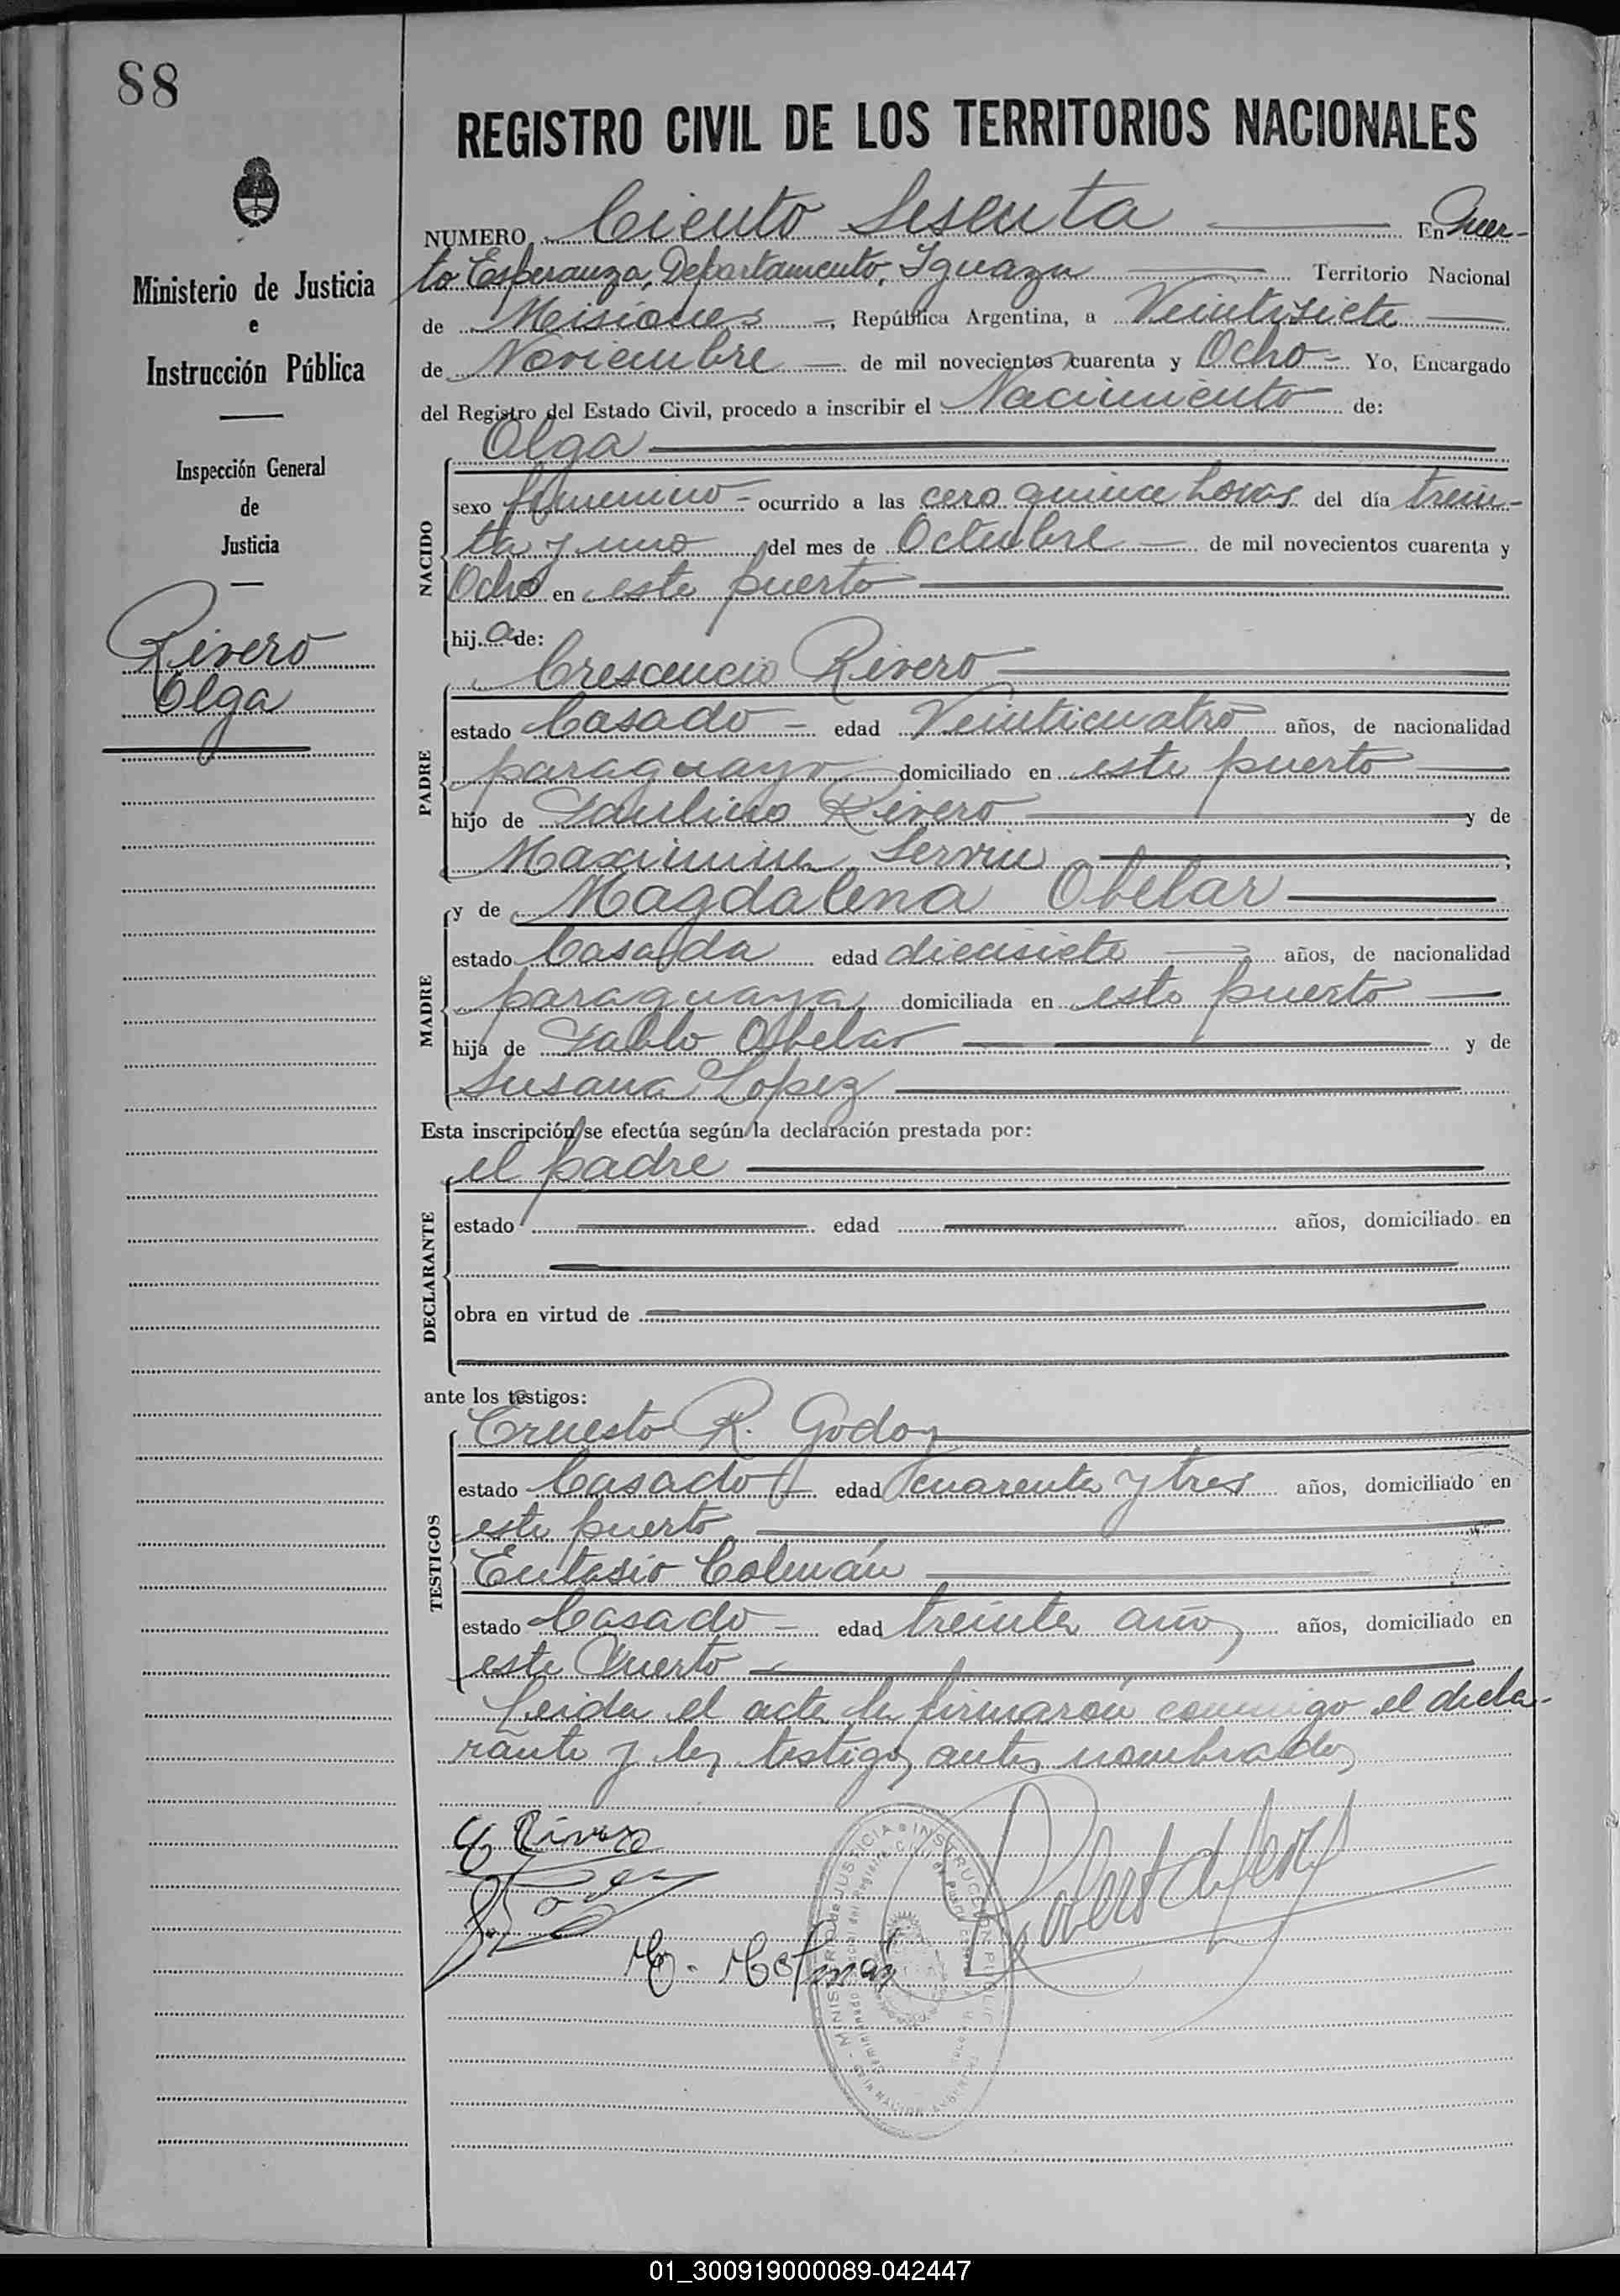 88
REGISTRO CIVIL DE LOS TERRITORIOS NACIONALES
NUMERO Ciento Sesenta En Puer-
to Esperanza, Departamento, Iguazu Territorio Nacional
de Misiones, República Argentina, a Veintisiete
de Noviembre de mil novecientos cuarenta y Ocho Yo, Encargado
del Registro del Estado Civil, procedo a inscribir el Nacimiento de:
Ministerio de Justicia
e
Instrucción Pública
Inspección General
de
Justicia
Rivero
Olga
NACIDO
Olga
sexo femenino ocurrido a las cero quince horas del día trein-
ta y uno del mes de Octubre de mil novecientos cuarenta y
Ocho en este puerto
hij. a de:
PADRE
Crescencio Rivero
estado Casado edad Veinticuatro años, de nacionalidad
paraguayo domiciliado en este puerto
hijo de Paulino Rivero y de
Maximina Servin
y de Magdalena Obelar
MADRE
estado Casada edad diecisiete años, de nacionalidad
paraguaya domiciliada en este puerto
hija de Pablo Obelar y de
Susana Lopez
Esta inscripción se efectúa según la declaración prestada por:
DECLARANTE
el padre
estado edad años, domiciliado en
obra en virtud de
ante los testigos:
TESTIGOS
Ernesto R. Godoy
estado Casado edad cuarenta y tres años, domiciliado en
este puerto
Eutasio Colmán
estado Casado edad treinta años años, domiciliado en
este Puerto
Leida el acta la firmaron conmigo el decla-
rante y los testigos antes nombrados
C Rivero
E. Colmán
MINISTERIO de JUSTICIA e INSTRUCCION PUBLICA
01_300919000089-042447